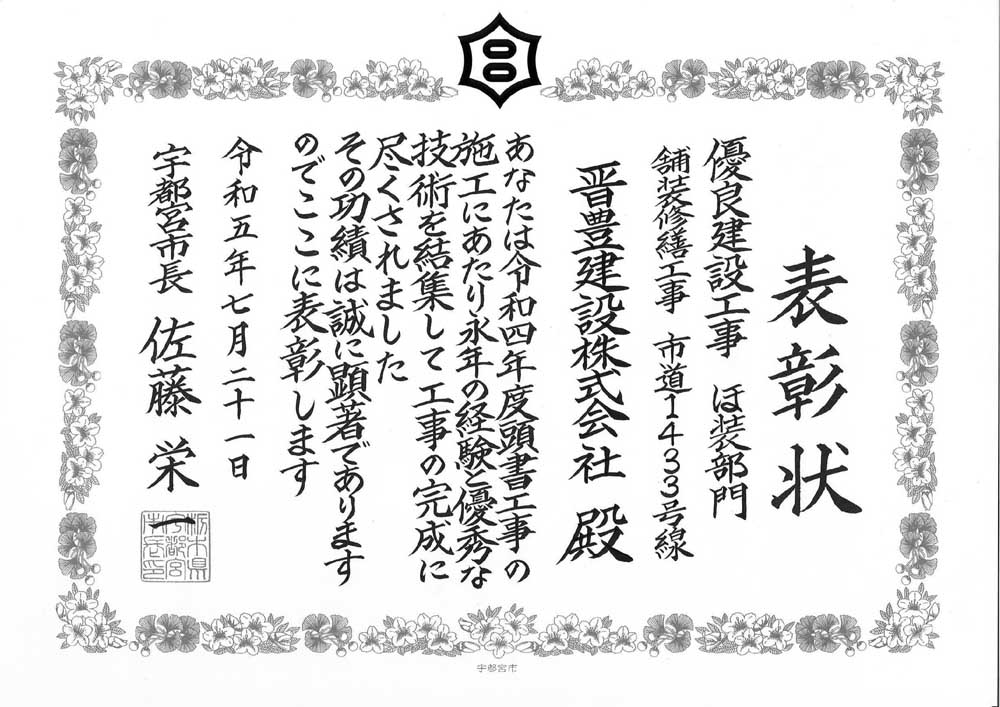 表彰状
優良建設工事 ほ装部門
舗装修繕工事 市道1433号線
晋豊建設株式会社 殿
あなたは令和四年度頭書工事の
施工にあたり永年の経験と優秀な
技術を結集して工事の完成に
尽くされました
その功績は誠に顕著であります
のでここに表彰します
令和五年七月二十一日
宇都宮市長 佐藤栄一
栃木県
宇都宮
市長印
宇都宮市